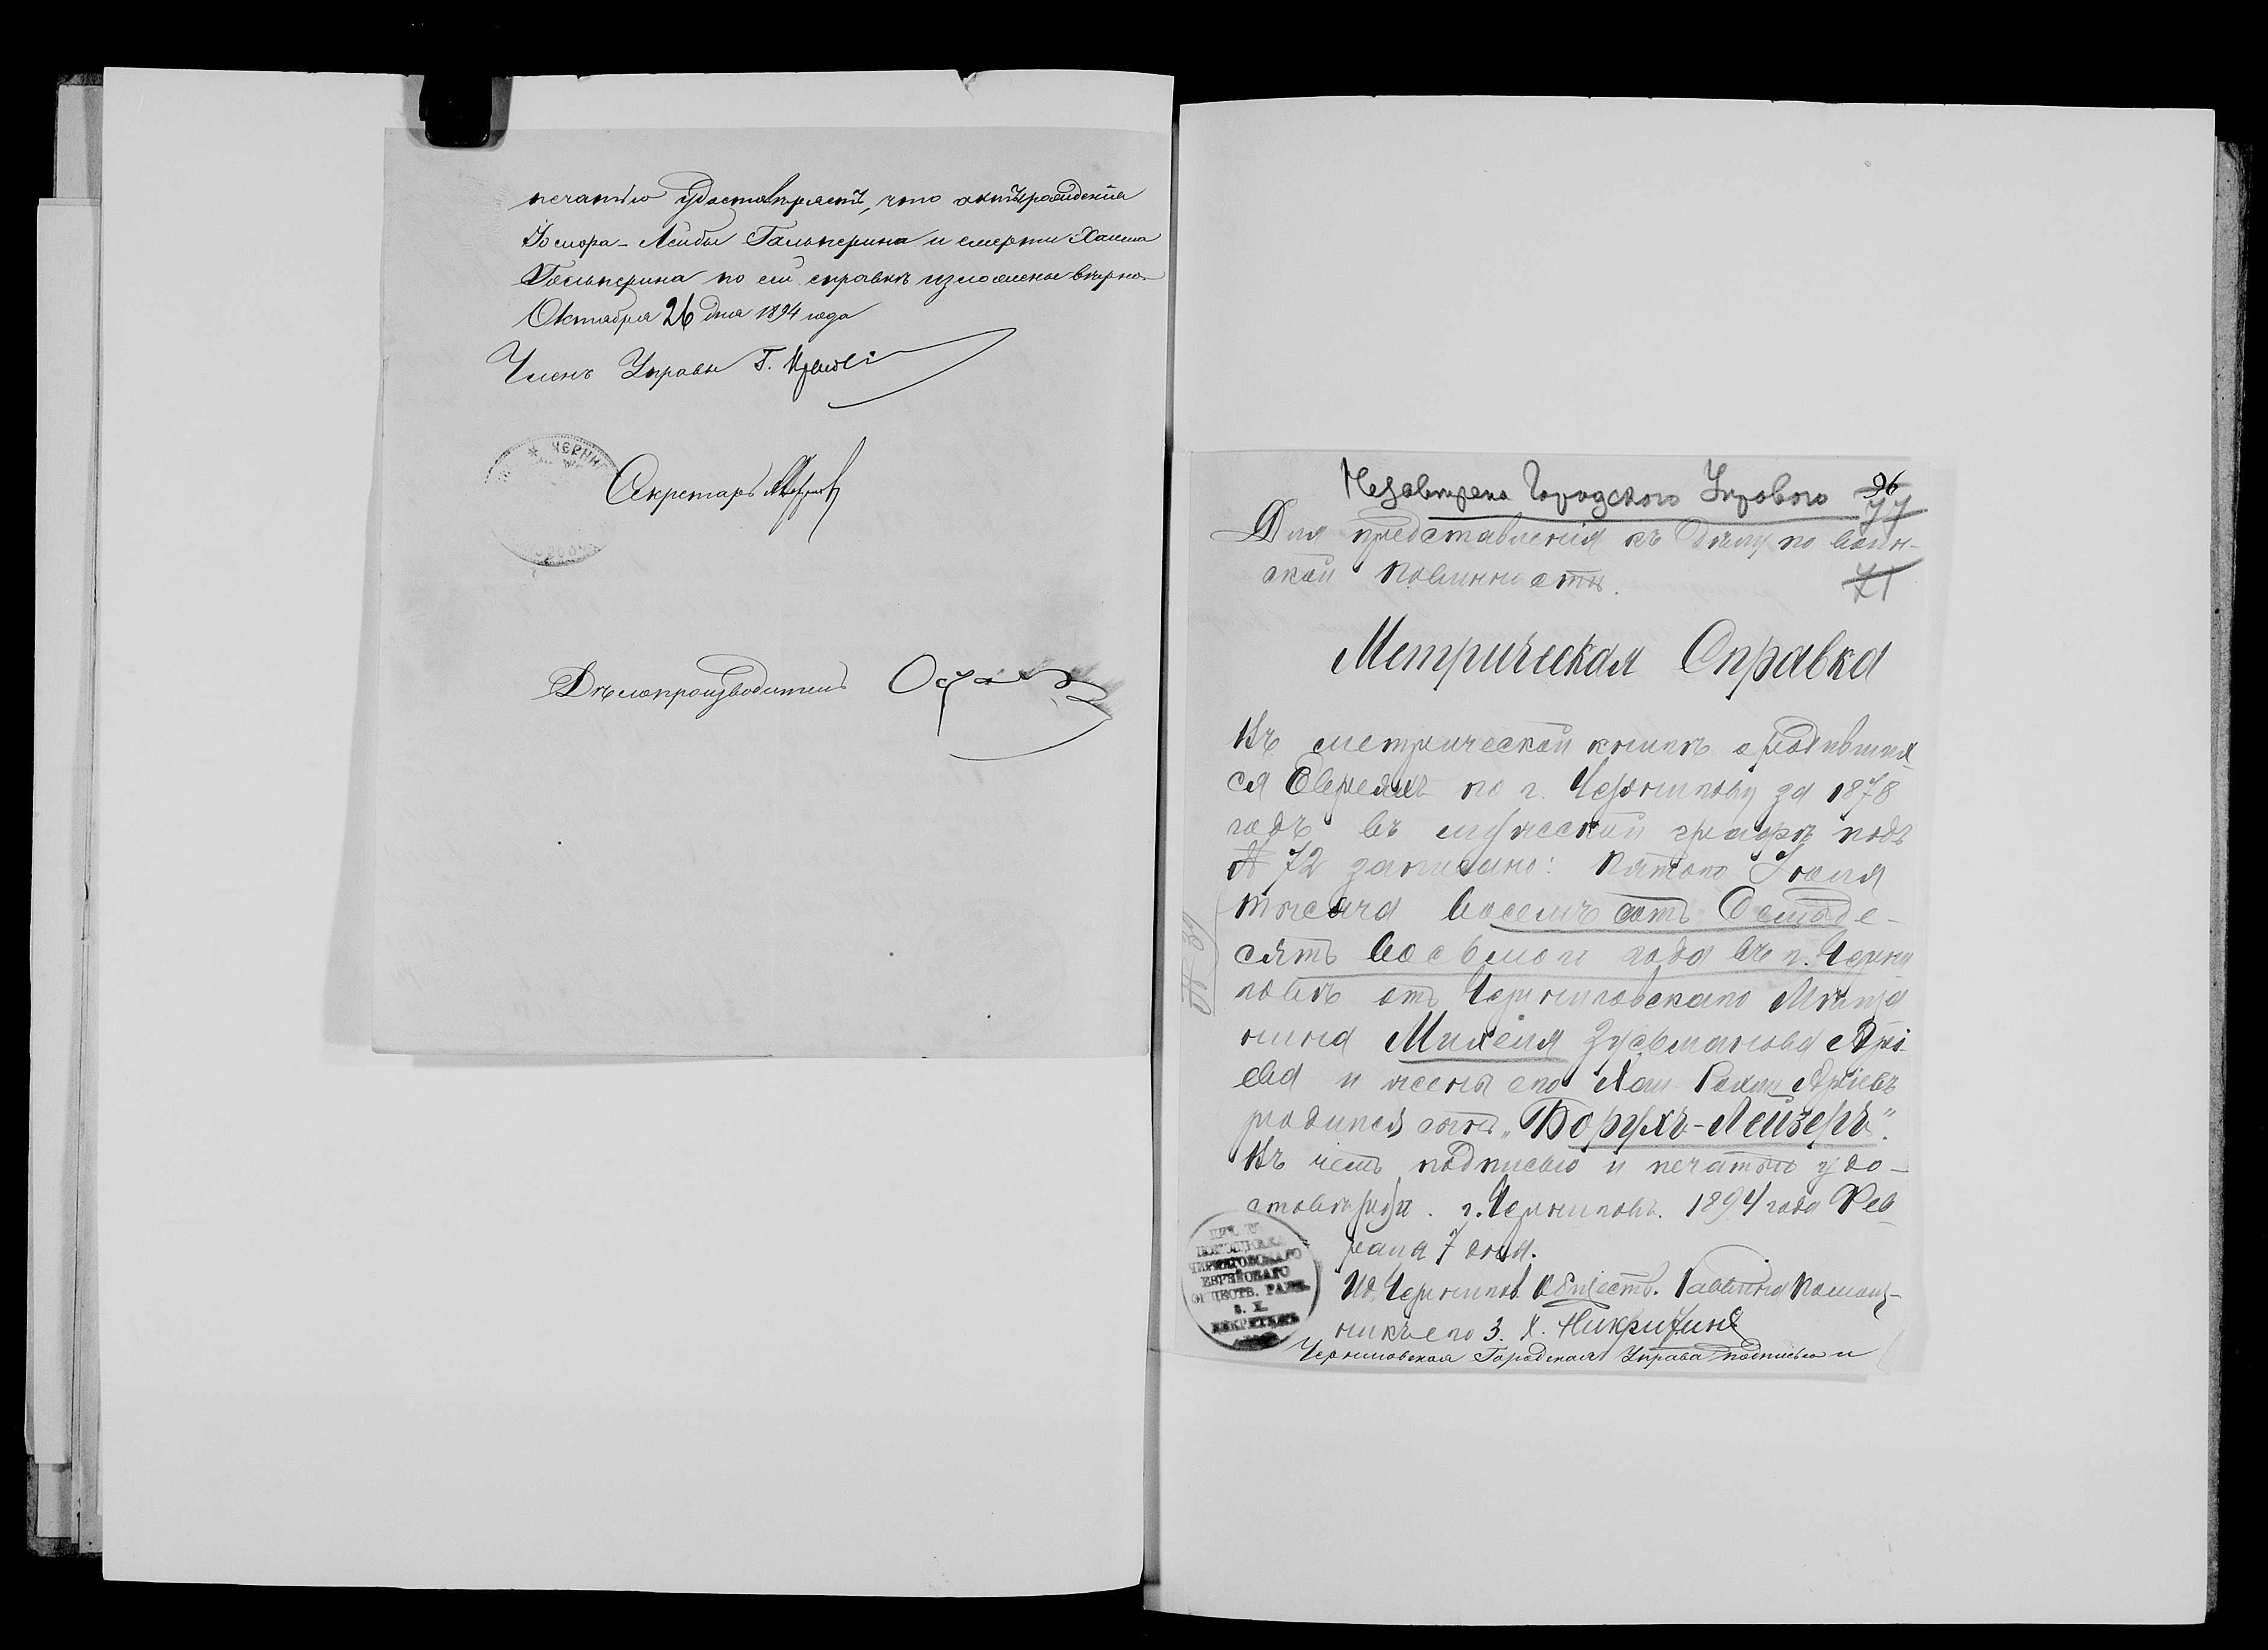 печатью удостовѣряетъ, что акты рожденія
Іосифа-Лейбы Гальперина и смерти Хаима
Гальперина по сей справкѣ изложены вѣрно
Октября 26 дня 1894 года
Членъ Управы Г.
* ЧЕРНИ
Секретарь
Дѣлопроизводитель
96
Незавѣрена Городскою Управою 77
Для представленія къ дѣлу по воин-
ской повинности.
71
Метрическая Справка
Въ метрической книгѣ о родивших
ся Евреяхъ по г. Чернигову за 1878
годъ въ мужской графѣ подъ
№ 72 записано: Пятого Іюля
тысяча восемь сотъ Семьде-
сятъ восьмого года въ г. Черни
говѣ отъ Черниговскаго Мѣща
нина Михеля Зусьманова Арі-
ева и жены его Хаи Рохли Аріевъ
родился сынъ „Борухъ-Лейзеръ".
Въ чемъ подписью и печатью удо-
стовѣряю. г. Черниговъ. 1894 года Фев
раля 7 дня.
ПЕЧАТЬ
ПОМОЩНИКА
ЧЕРНИГОВСКАГО
ЕВРЕЙСКАГО
ОБЩЕСТВ. РАВВ.
З. Х.
И.д. Чернигов. Обществ. Раввина Помощ-
никъ его З. Х. Никритинъ
Черниговская Городская Управа подписью и